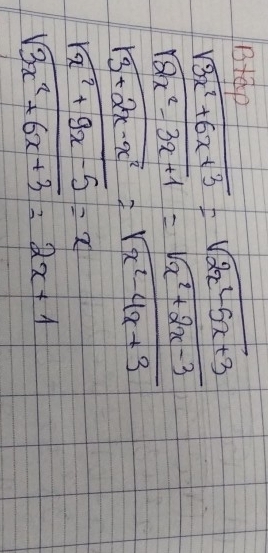 √3x²+6x+3 = √2x²-5x+3
√8x²-3x+1 = √x²+2x-3
√9+2x-x² = √x²-4x+3
√x²+9x-5 = x
√3x²+6x+3 = 2x+1